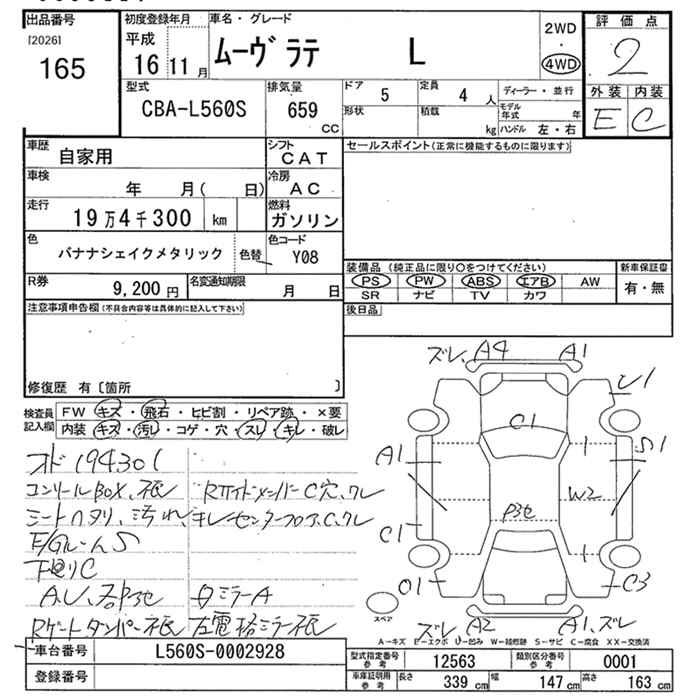 出品番号
[2026]
165
初度登録年月
平成
16 11 月
車名・グレード
ムーヴラテ L
2WD
・
4WD
評価点
2
外装 内装
E C
型式
CBA-L560S
排気量
659
CC
ドア
5
定員
4 人
ディーラー・並行
形状
積載
kg
モデル年式 年
ハンドル 左・右
車歴
自家用
シフト
CAT
車検
年 月( 日)
冷房
AC
走行
19万4千300 km
燃料
ガソリン
色
バナナシェイクメタリック
色替
色コード
Y08
R券
9,200 円
名変通知期限
月 日
セールスポイント(正常に機能するものに限ります)
装備品 (純正品に限り○をつけてください)
新車保証書
PS PW ABS エアB AW
有・無
SR ナビ TV カワ
後日品
注意事項申告欄(不具合内容等は具体的に記入して下さい)
修復歴 有〔箇所 〕
検査員記入欄
FW キズ・飛石・ヒビ割・リペア跡・×要
内装 キズ・汚レ・コゲ・穴・スレ・キレ・破レ
オド194301
E/GルームS
下廻りC
ズレ、A4 A1
A1
C1
S1
W2
C1
O1
C3
ズレ A2
A1、ズレ
スペア
A-キズ E-エクボ U-凹み W-板修跡 S-サビ C-腐食 XX-交換済
車台番号
L560S-0002928
登録番号
型式指定番号 参考
12563
類別区分番号 参考
0001
車庫証明用 参考
長さ 339 cm
幅 147 cm
高さ 163 cm